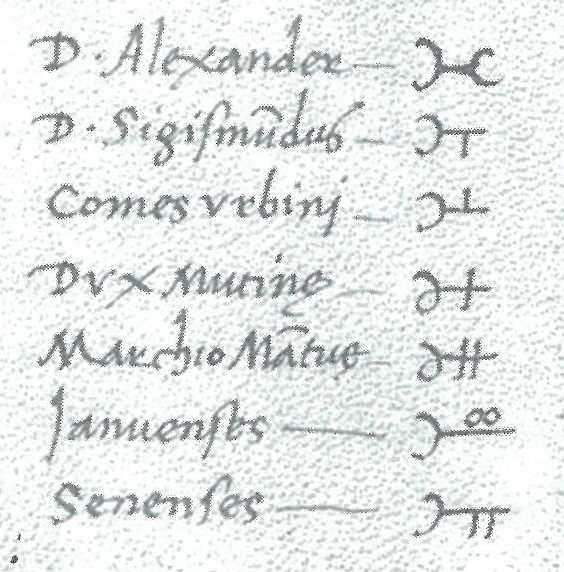 D. Alexander —
D. Sigiſmūdus —
Comes vrbinj —
Dvx Mutine —
Marchio Mātue —
Januenſes —
Senenſes —